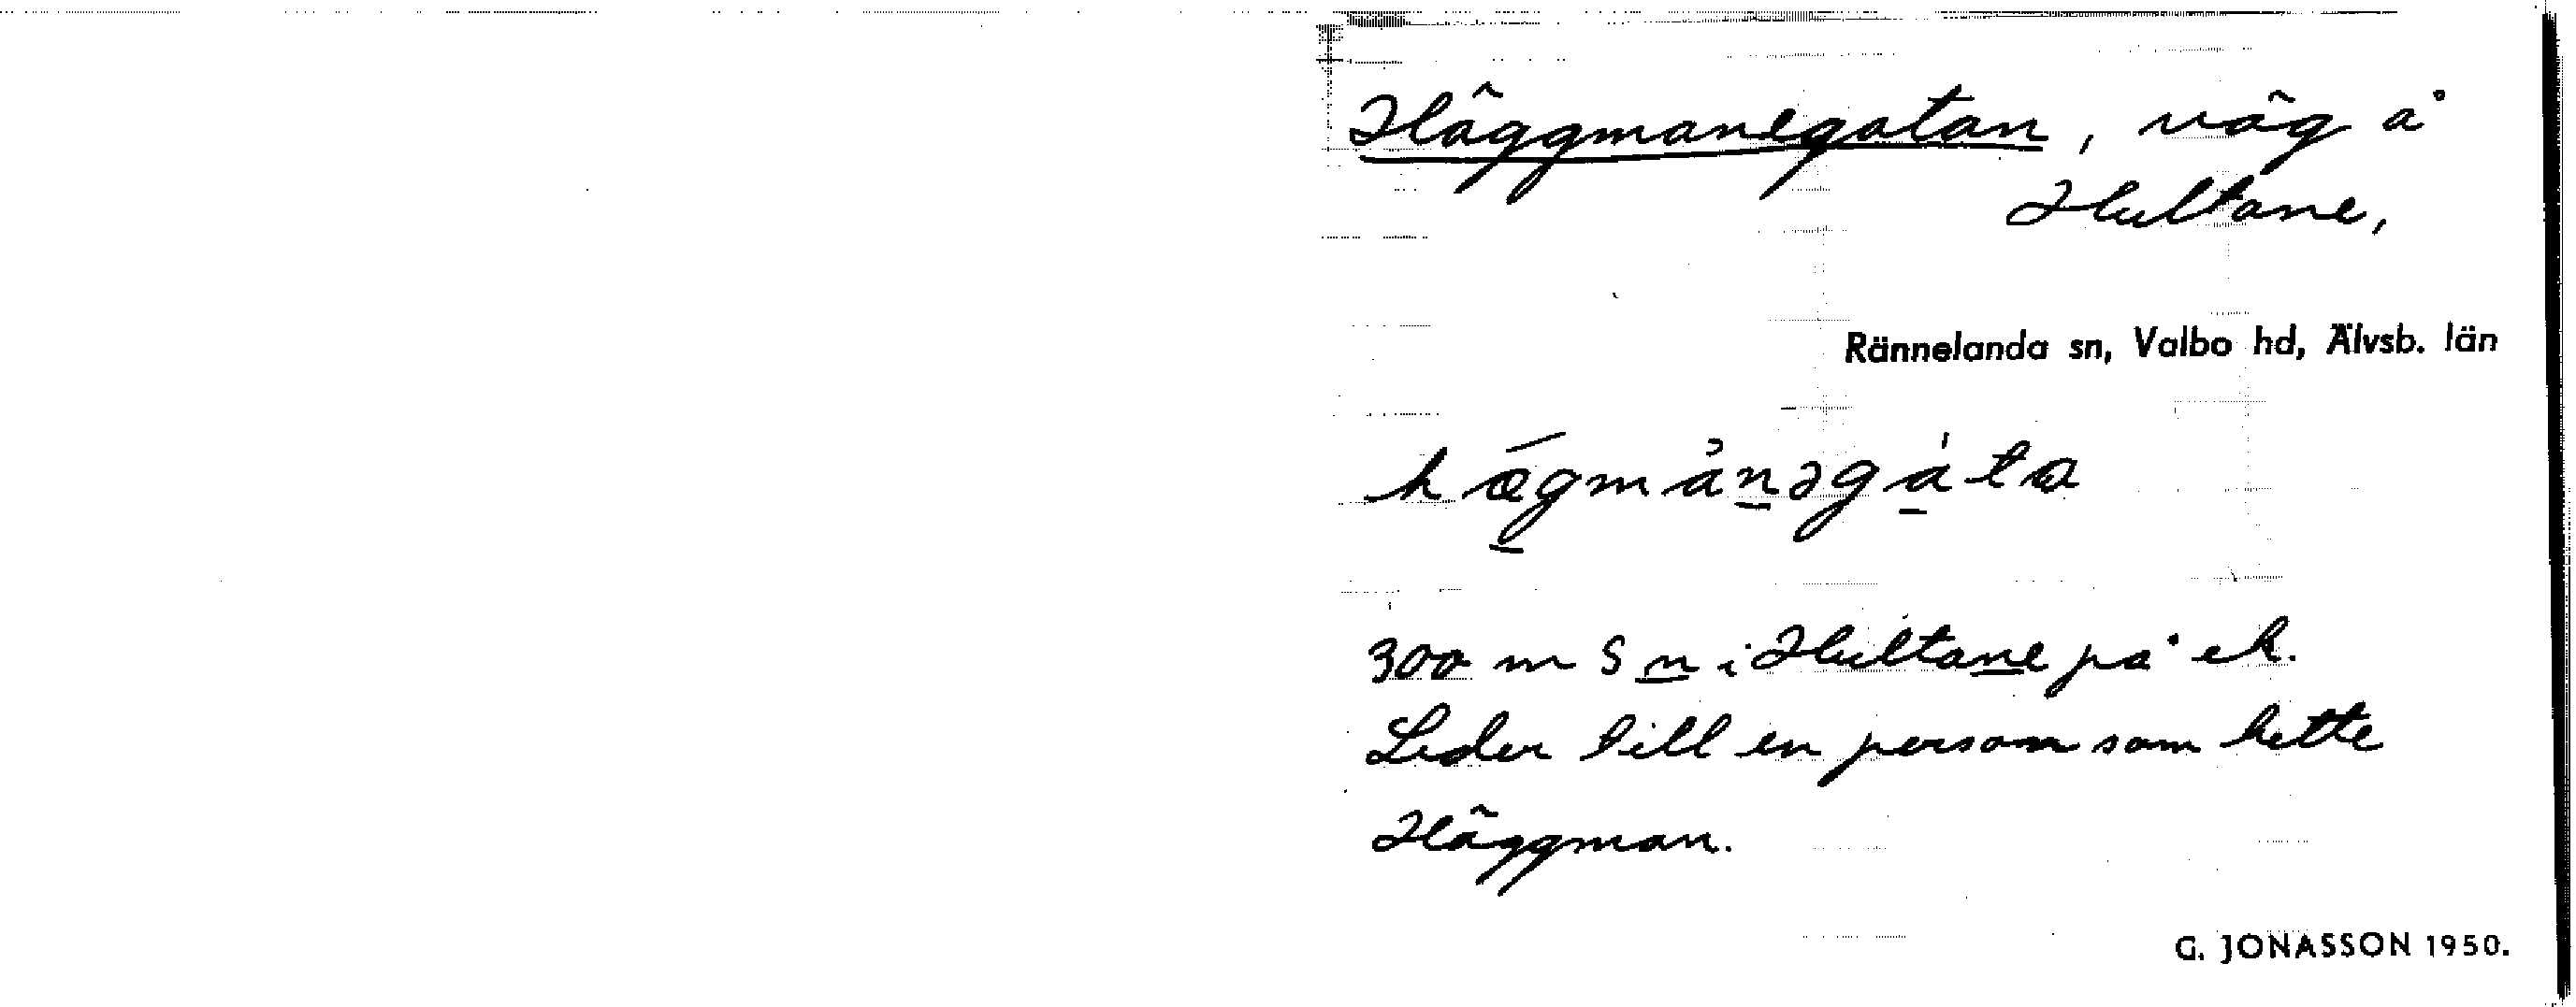 Häggmanegatan, väg å
Hultane,
Rännelanda sn, Valbo hd, Älvsb. län
hægmånəgàta
300 m S n i Hultane på ek.
Leder till en person som hette
Häggman.
G. JONASSON 1950.